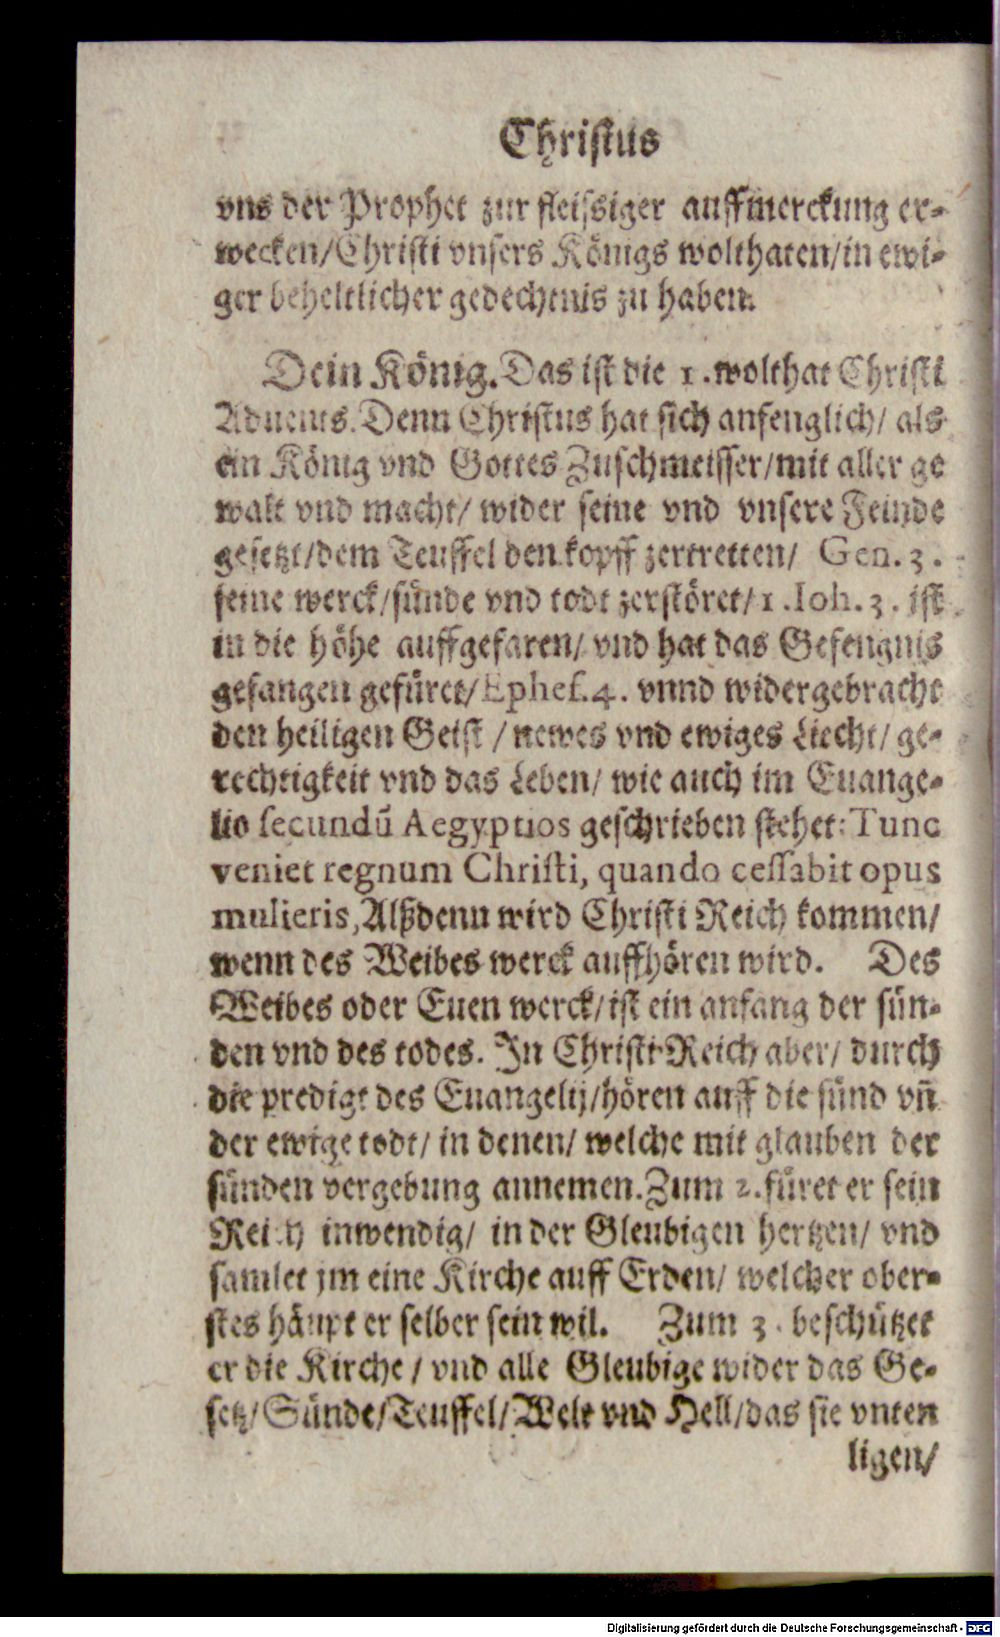 Christus
vns der Prophet zur fleissiger auffmerckung er-
wecken/Christi vnsers Königs wolthaten/in ewi-
ger beheltlicher gedechtnis zu haben.
Dein König. Das ist die 1. wolthat Christi
Aduents. Denn Christus hat sich anfenglich/ als
ein König vnd Gottes Zuschmeisser/mit aller ge
walt vnd macht/ wider seine vnd vnsere Feinde
gesetzt/dem Teuffel den kopff zertretten/ Gen. 3.
seine werck/sünde vnd todt zerstöret/1. Ioh. 3. ist
in die höhe auffgefaren/ vnd hat das Gefengnis
gefangen gefüret/Ephes. 4. vnnd widergebracht
den heiligen Geist / newes vnd ewiges Liecht/ ge-
rechtigkeit vnd das Leben/ wie auch im Euange-
lio secundũ Aegyptios geschrieben stehet: Tunc
veniet regnum Christi, quando cessabit opus
mulieris, Alßdenn wird Christi Reich kommen/
wenn des Weibes werck auffhören wird. Des
Weibes oder Euen werck/ist ein anfang der sün-
den vnd des todes. In Christi Reich aber/ durch
die predigt des Euangelij/hören auff die sünd vñ
der ewige todt/ in denen/ welche mit glauben der
sünden vergebung annemen. Zum 2. füret er sein
Reich inwendig/ in der Gleubigen hertzen/ vnd
samlet jm eine Kirche auff Erden/ welcher ober-
stes häupt er selber sein wil. Zum 3. beschützet
er die Kirche / vnd alle Gleubige wider das Ge-
setz/Sünde/Teuffel/Welt vnd Hell/das sie vnten
ligen/
Digitalisierung gefördert durch die Deutsche Forschungsgemeinschaft - DFG